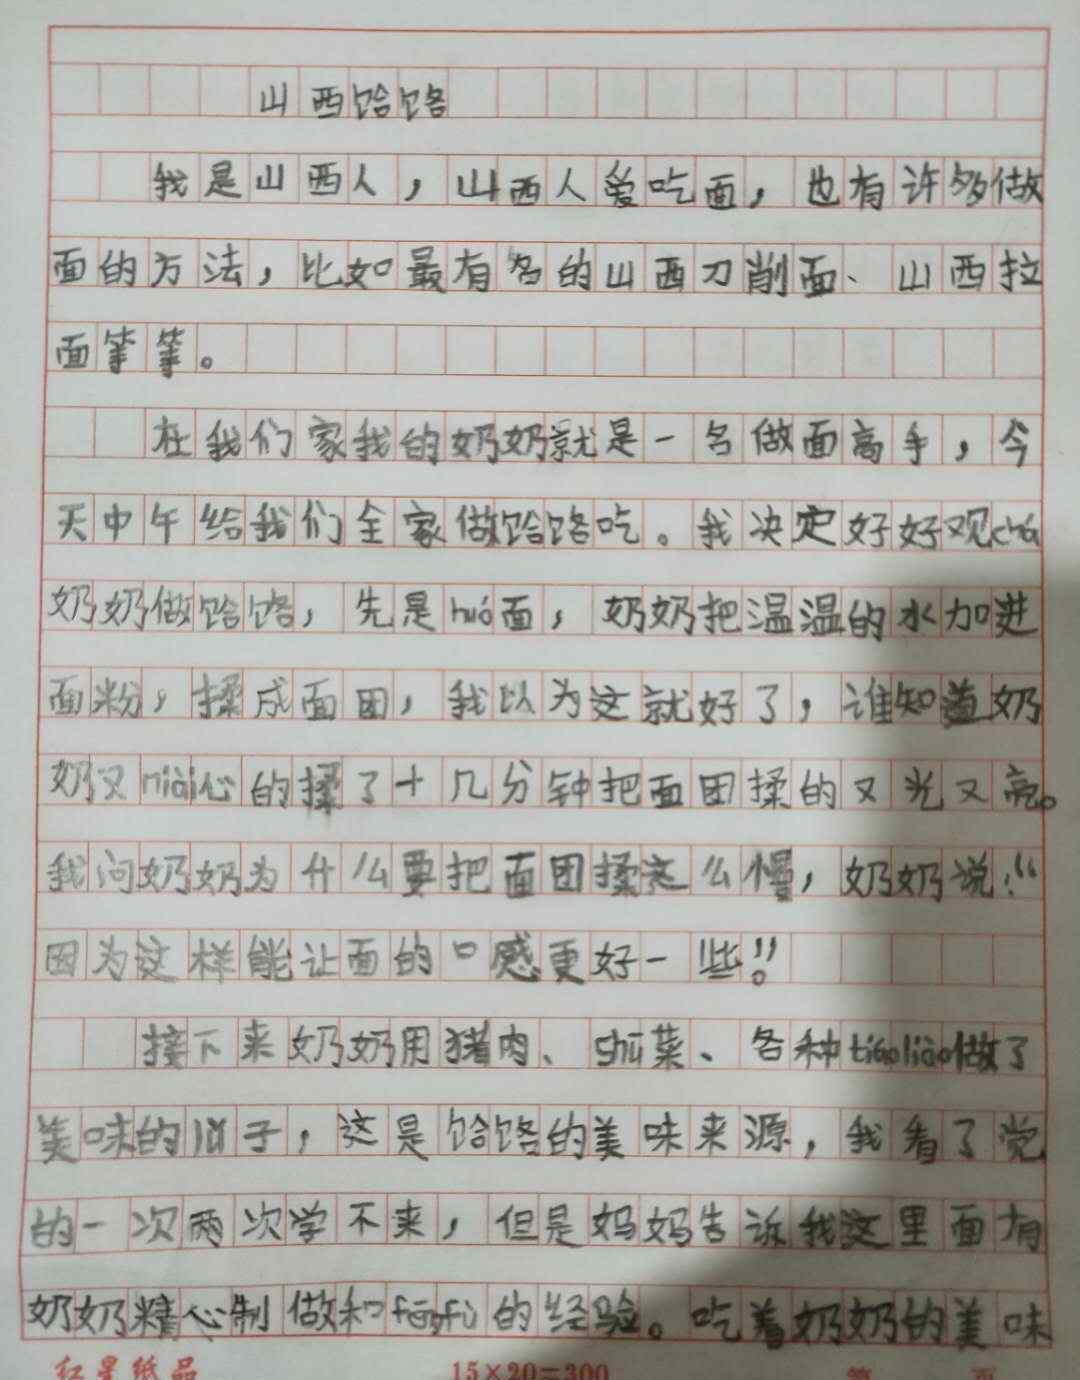 山西饸饹
我是山西人，山西人爱吃面，也有许多做
面的方法，比如最有名的山西刀削面、山西拉
面等等。
在我们家我的奶奶就是一名做面高手，今
天中午给我们全家做饸饹吃。我决定好好观chá
奶奶做饸饹，先是huó面，奶奶把温温的水加进
面粉，揉成面团，我以为这就好了，谁知道奶
奶又nài心的揉了十几分钟把面团揉的又光又亮。
我问奶奶为什么要把面团揉这么慢，奶奶说：“
因为这样能让面的口感更好一些”。
接下来奶奶用猪肉、shū菜、各种tiáoliào做了
美味的子，这是饸饹的美味来源，我看了觉
的一次两次学不来，但是妈妈告诉我这里面有
奶奶精心制做和fēngfù的经验。吃着奶奶的美味
红星纸品
15×20=300
第 页